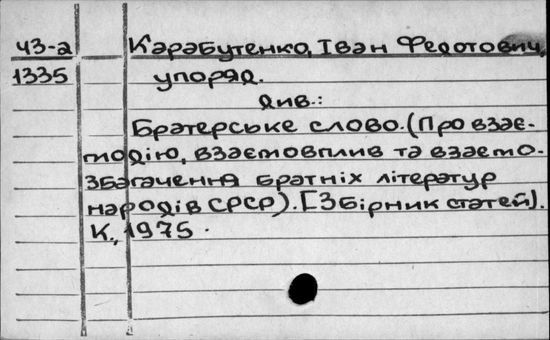 ч3-а Карабутенко, Іван Федотович,
1335 упоряд.
див.:
Братерське слово. (Про взає-
модію, взаємовплив та взаємо-
збагачення братніх літератур
народів СРСР). [Збірник статей].
К., 1975.